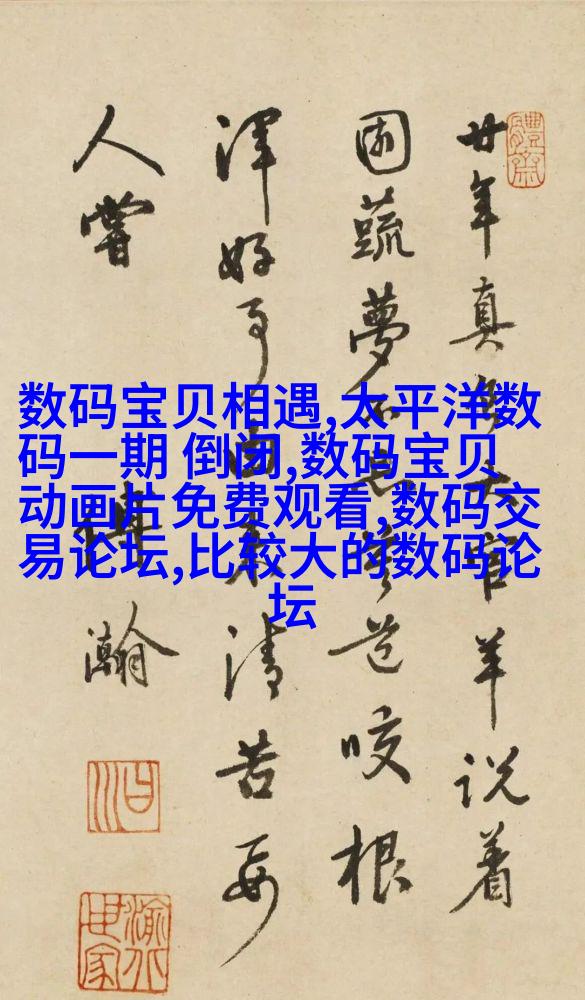 数码宝贝相遇,太平洋数
码一期 倒闭,数码宝贝
动画片免费观看,数码交
易论坛,比较大的数码论
坛
廿年真無大官羊说着
園蔬夢道咬根
渾好事由来清苦要
人嘗
瀚